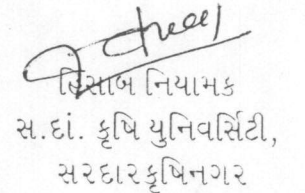 હિસાબ નિયામક
સ.દાં. કૃષિ યુનિવર્સિટી,
સરદારકૃષિનગર